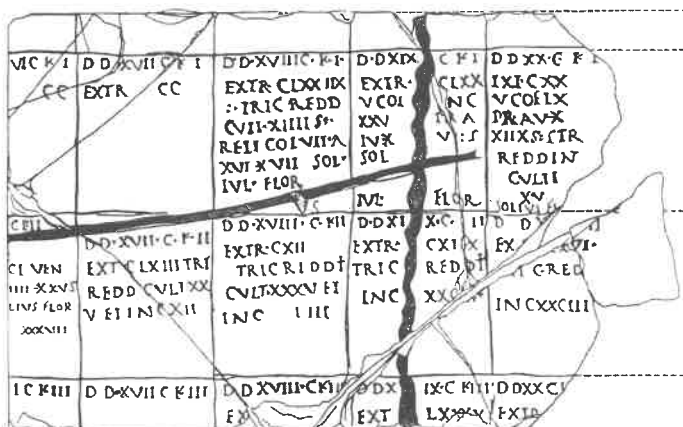 VI C K I
CC
D D XVII C K I
EXTR CC
D D XVIII C K I
EXTR CLXXIIX
TRIC REDD
CVII XIIII S
RELI COL VII A
XVI X VII SOL
IVL FLOR
D D XIX C K I
EXTR CLXX
V COL INC
XXV PRA
IV X V S
SOL
IVL FLOR
D D XX C K I
IXI CXX
V COL LX
PRA V X
XIIXS STR
REDD IN
CVLTI
XV
C K II
CL VEN
IIII XXVS
LIVS FLOR
XXXVIII
D D XVII C K II
EXT CLXIII TRI
REDD CVLT XX
V ET INC XII
D D XVIII C K II
EXTR CXII
TRIC REDD
CVLT XXXV ET
INC LIII
D D XIX C K II
EXTR CXI X
TRIC REDD
INC XX
D D
EX VI
C RED
IN CXXCIII
I C K III
D D XVII C K III
D D XVIII C K II
EX
D D XIX C K III
EXT LXXXX
D D XX C
EXTR